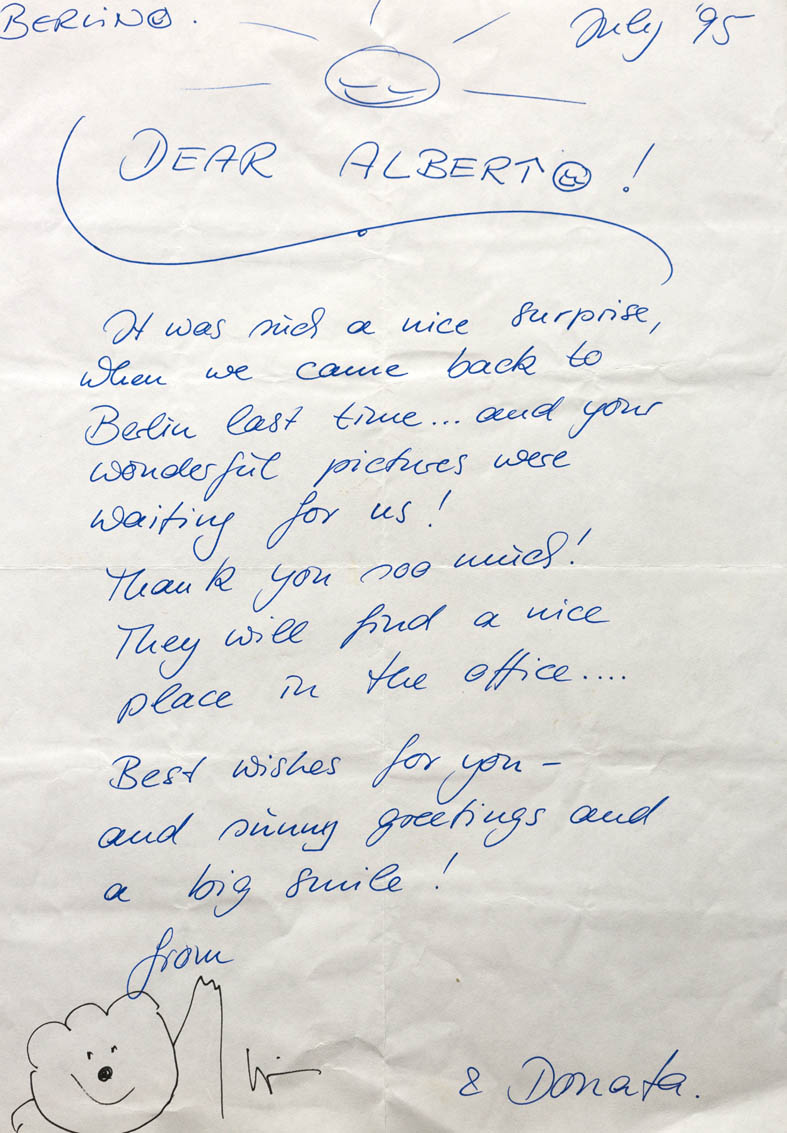 BERLINO. July '95
DEAR ALBERTO!
It was such a nice surprise,
when we came back to
Berlin last time... and your
wonderful pictures were
waiting for us!
Thank you soo much!
They will find a nice
place in the office....
Best wishes for you –
and sunny greetings and
a big smile!
from
& Donata.